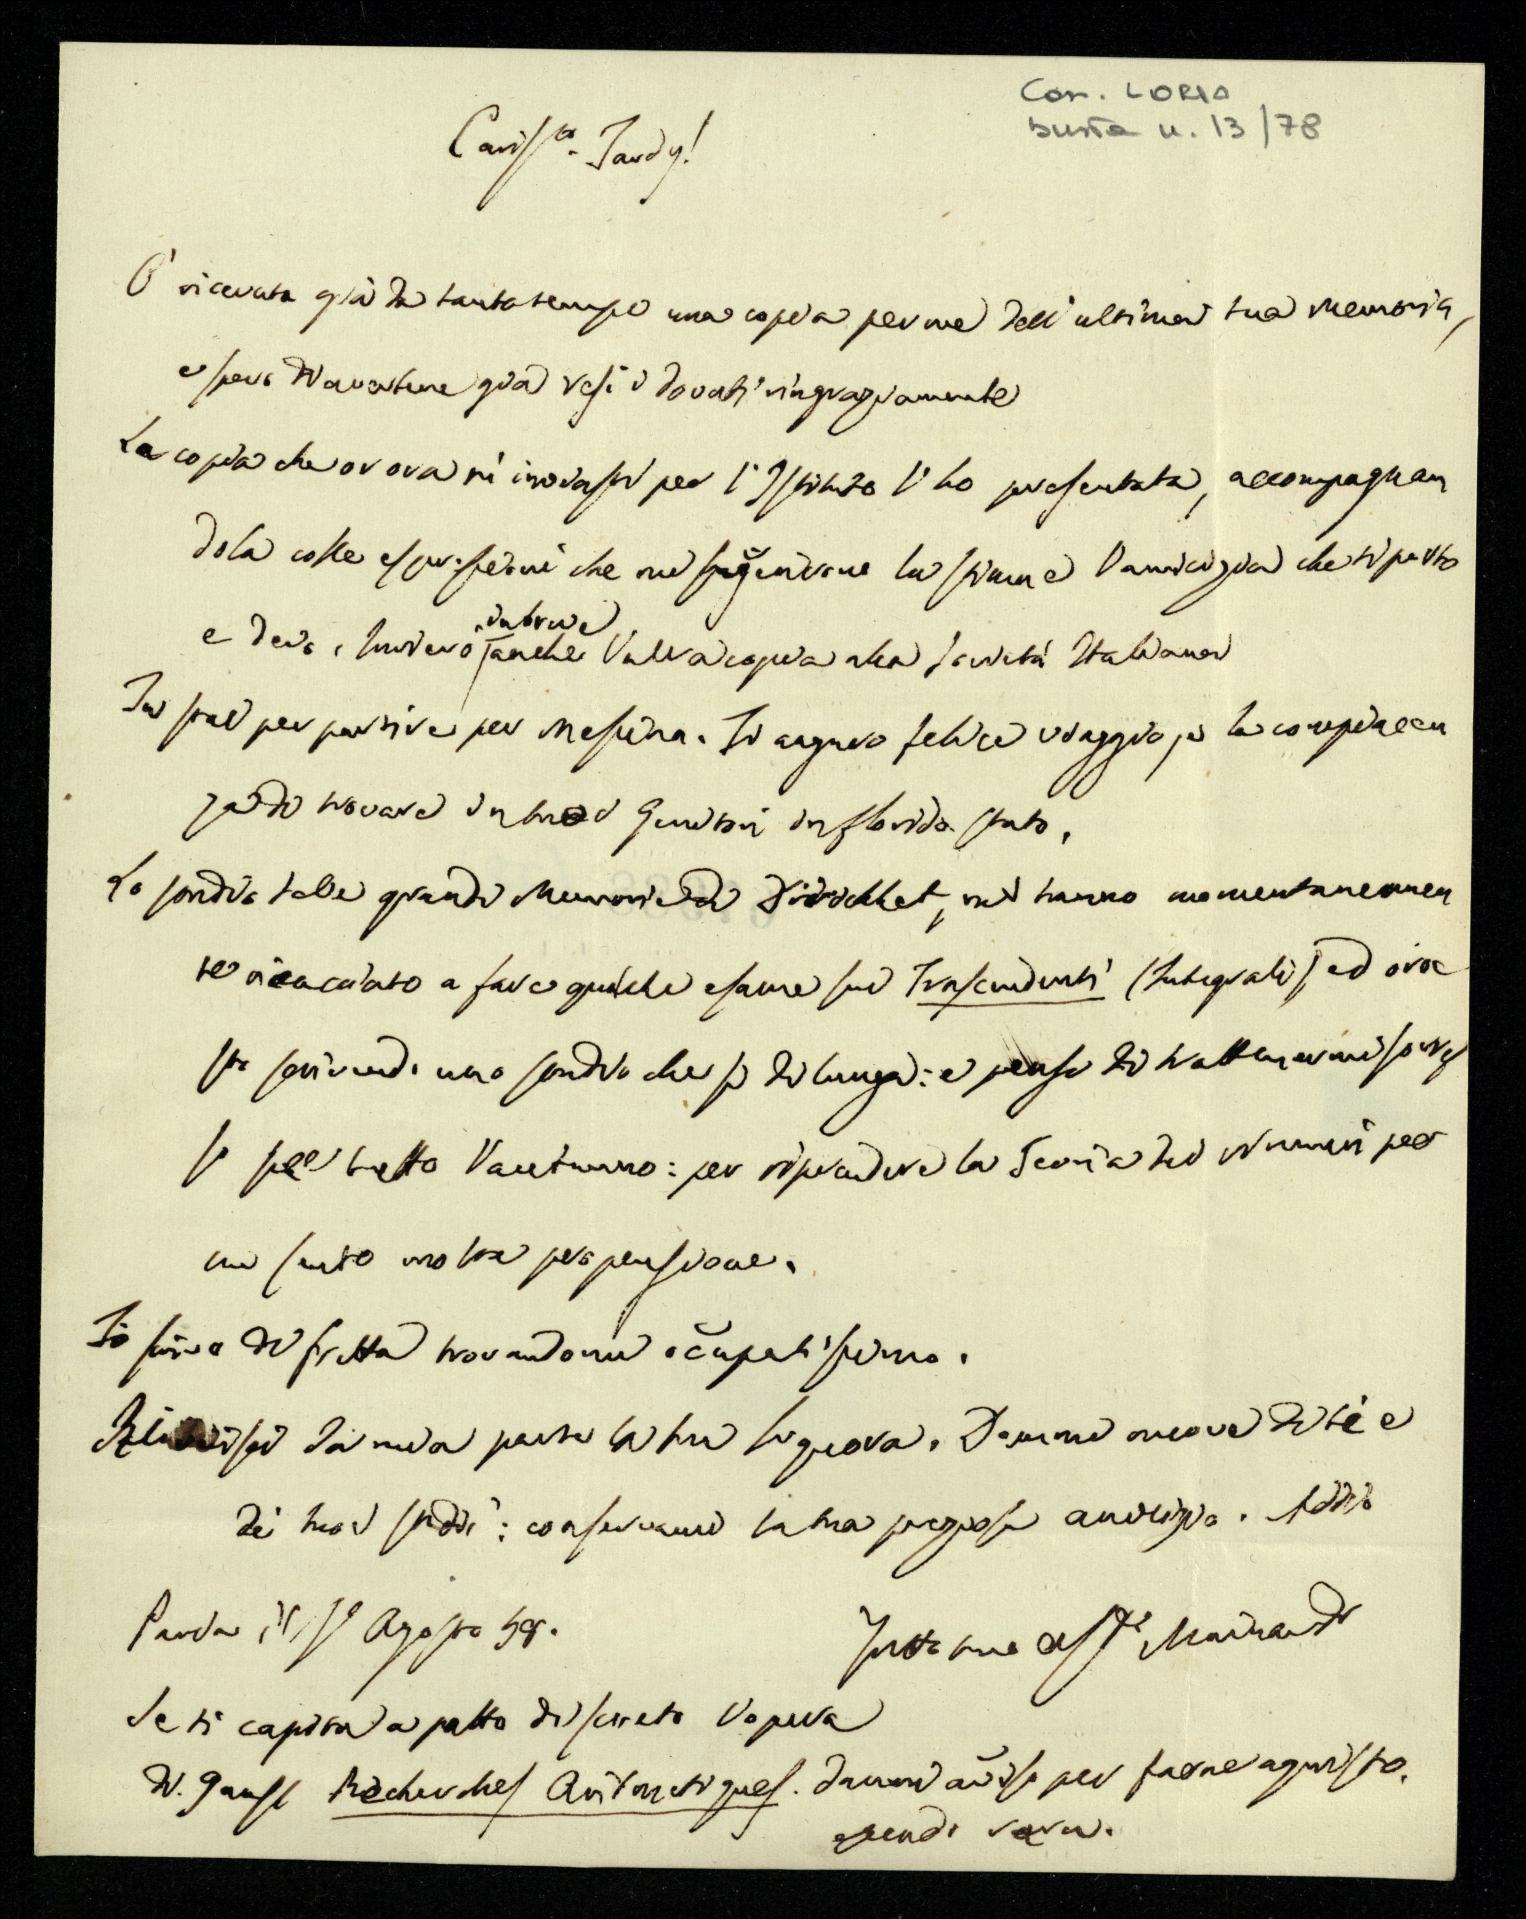 Con. LORIA
busta n. 13/78
Cariss.º Tardy!
Ò ricevuta già da tanto tempo una copia per me dell'ultima tua Memoria,
e spero d'avertene già resi i dovuti ringraziamente
La copia che or ora mi inviasti per l'Istituto l'ho presentata, accompagnan
dola colle espressioni che mi suggerirono la stima e l'amicizia che ti porto
e devo. Invierò in breve anche l'altra copia alla Società Italiana
Tu stai per partire per Messina. Ti auguro felice viaggio, e la compiacen
za di trovare i tuoi Genitori in florido stato.
Lo studio delle grandi Memorie di Dirichlet, mi hanno momentaneamen
te ricacciato a fare qualche esame sui Trascendenti (Integrali) ed ora
sto scrivendo uno studio che si dilunga: e penso di trattenermi
per tutto l'autunno: per riprendere la Teoria dei Numeri per
cui sento molta propensione.
Io scrivo di fretta trovandomi occupatissimo.
Riverisci da mia parte la tua Signora. Dammi nuove di te e
dei tuoi studi: conservami la tua preziosa amicizia. Addio
Pavia il Agosto 59.
Tutto tuo aff.º Mainardi
Se ti capita a patto discreto l'opera
di Gauss Recherches Aritmetiques. dammi avviso per farne aquisto.
essendo rara.